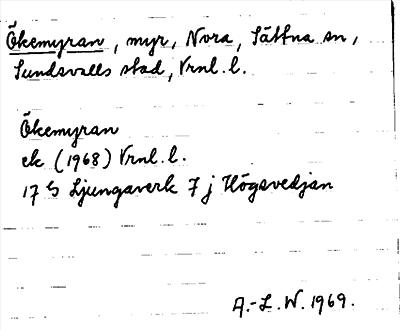 Ökemyran, myr, Nora, Sättna sn,
Sundsvalls stad, Vrnl. l.
Ökemyran
ek (1968) Vrnl. l.
17 G Ljungaverk 7 j Högsvedjan
A.-L. W. 1969.